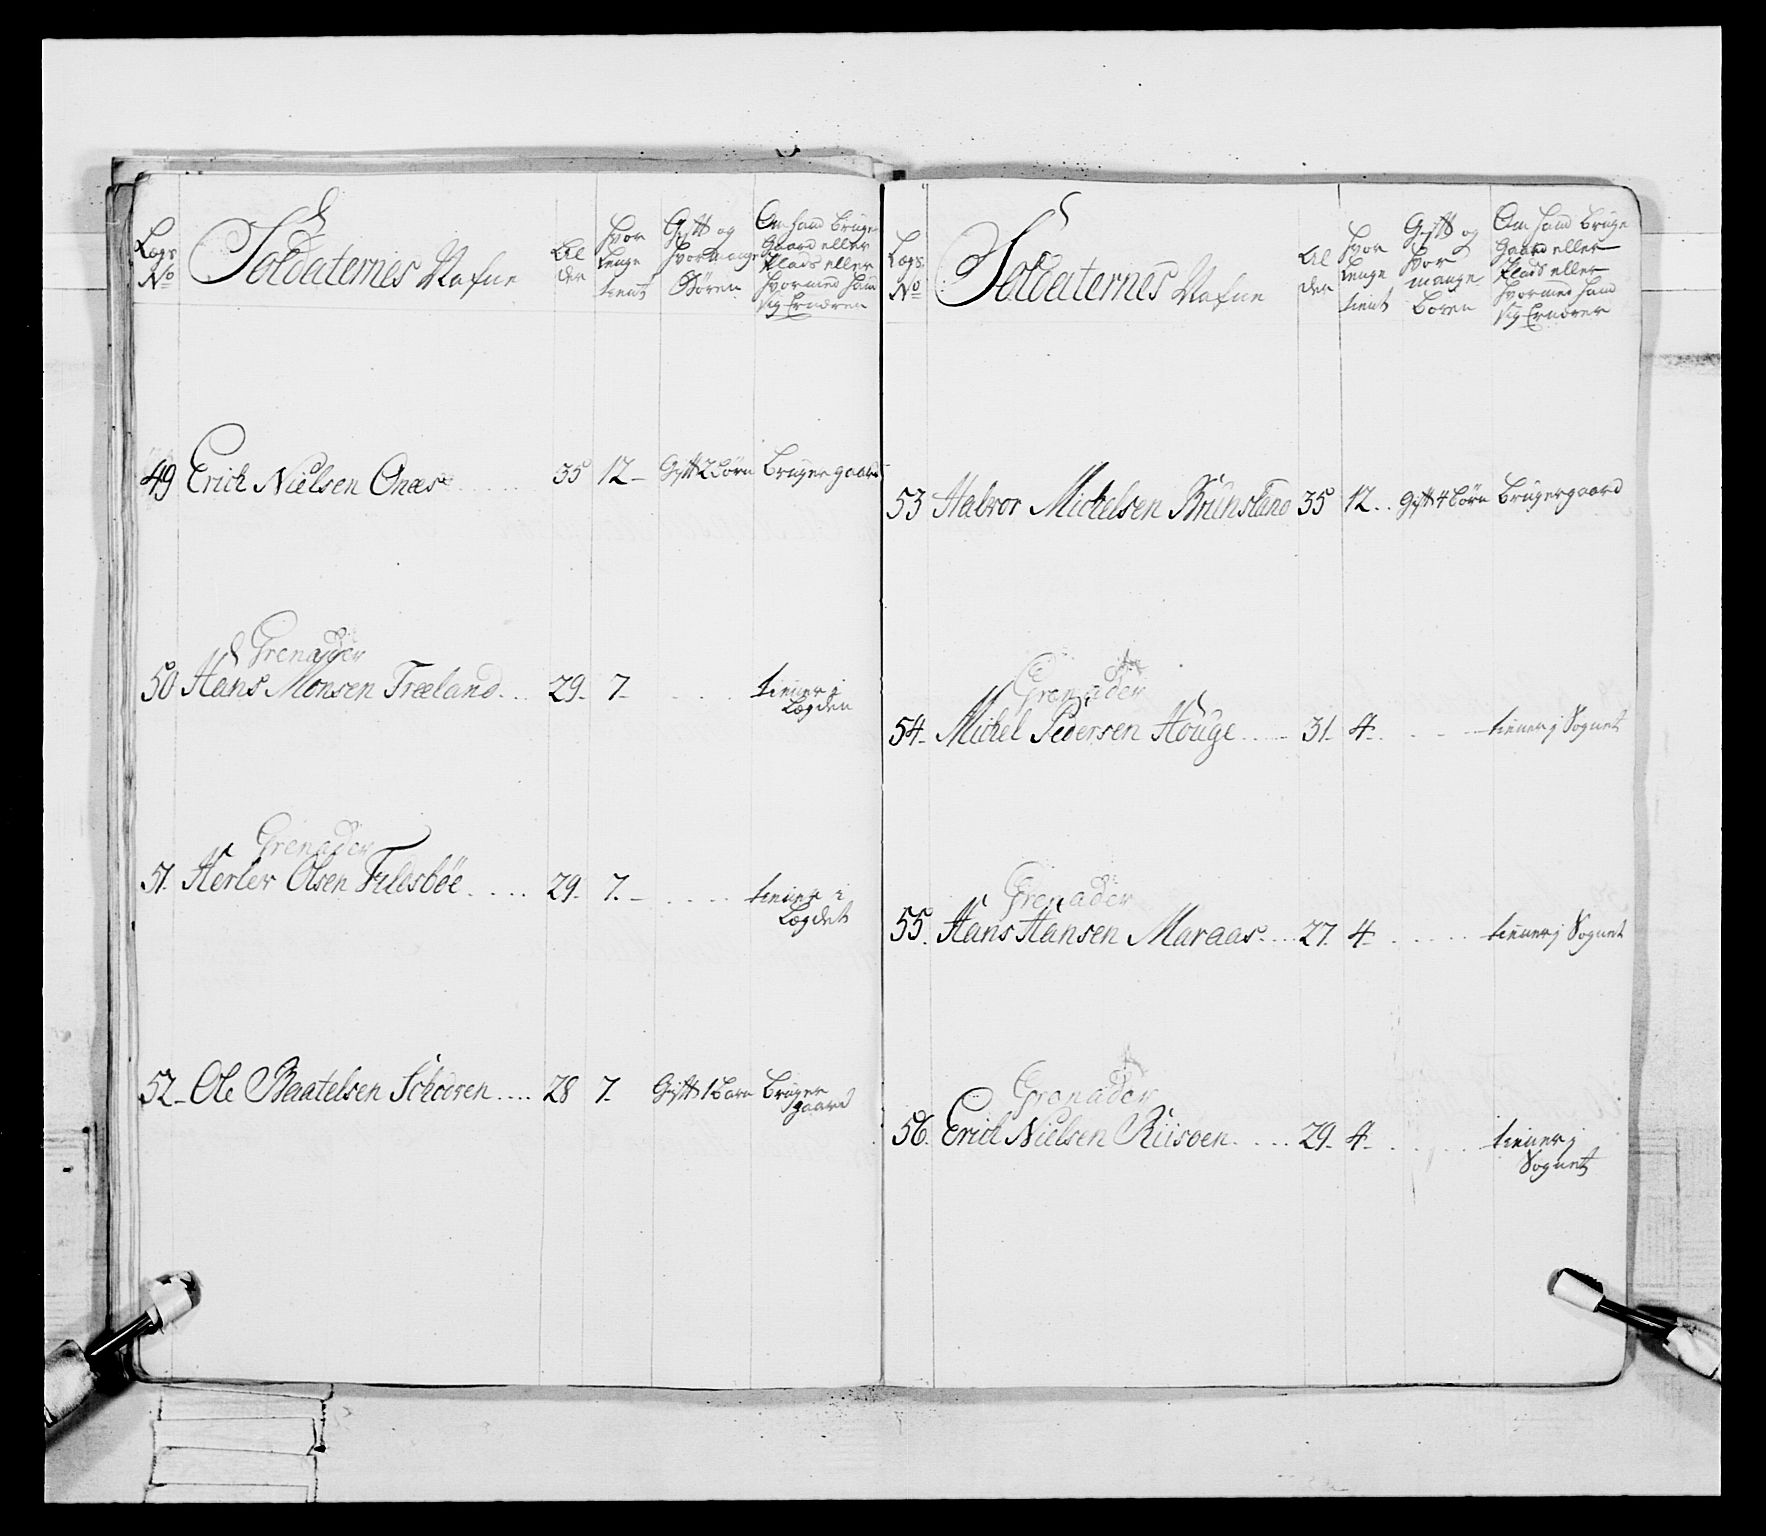 Lægs No Soldaternes Nafne Al der Hvor Lenge tient Gift og Hvor mange Børen Om Hand Bruger Gaard eller Plads eller Hvormed Han sig Ernæren
49 Erich Nielsen Onæs 35 12 Gift 2 børn Bruger gaard
Grenader
50 Hans Monsen Træland 29 7 tiener i Lægden
Grenader
51 Herlev Olsen Fildsbøe 29 7 tiener i Lægdet
52 Ole Baatelsen Schoeren 28 7 Gift 1 Barn Bruger gaard
Lægs No Soldaternes Nafne Al der Hvor Lenge tient Gift og Hvor mange Boren Om Hand Bruge Gaard eller Plads eller Hvormed Hand sig Ernærer
53 Halvor Michelsen Brunsland 35 12 Gift 4 børn Bruger gaard
Grenader
54 Michel Pedersen Houge 31 4 tiener j Sognet
Grenader
55 Hans Hansen Maraas 27 4 tiener j Sognet
Grenader
56 Erich Nielsen Riisoen 29 4 tiener j Sognet